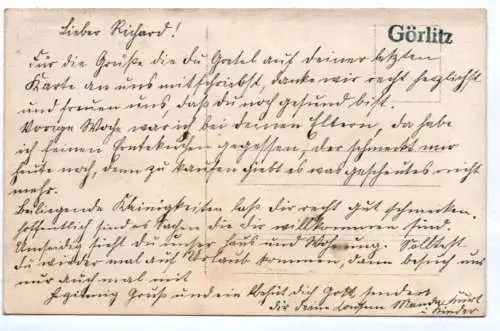 Lieber Richard!
Görlitz
Für die Grüße die du Gretel auf deiner letzten
Karte an uns mitschriebst, danken wir recht herzlichst
und freuen uns, daß du noch gesund bist.
Vorige Woche war ich bei deinen Eltern, da habe
ich feinen gegessen, der schmeckt mir
heute noch, denn zu kaufen giebt es was gescheutes nicht
mehr.
Beiliegende Kleinigkeiten laß dir recht gut schmecken.
Hoffentlich sind es Sachen die dir willkommen sind.
Umseitig siehst du unser Haus und Wohnung. Solltest
du wieder mal auf Urlaub kommen, dann besuch uns
nur auch mal mit
Gruß und ein Behüt dich Gott sendet
dir deine Kurt
u Kinder